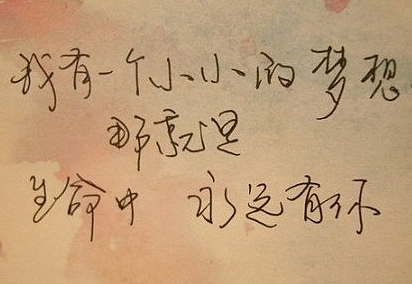 我有一个小小的梦想
那就是
生命中 永远有你